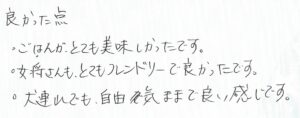 良かった点
・ごはんが、とても美味しかったです。
・女将さんも、とてもフレンドリーで良かったです。
・犬連れでも、自由気ままで良い感じです。